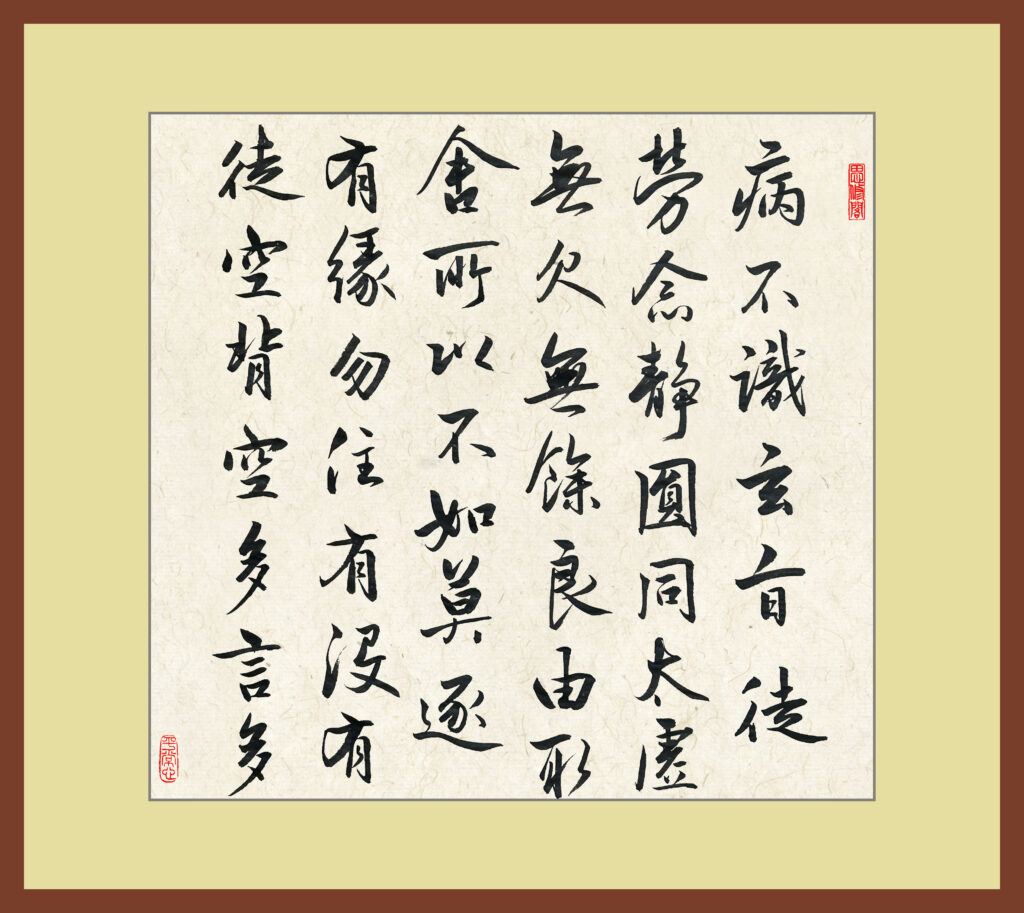 思修閣
病不識玄旨徒
勞念静圓同太虛
無欠無餘良由取
舍所以不如莫逐
有緣勿住有沒有
徒空背空多言多
平常心